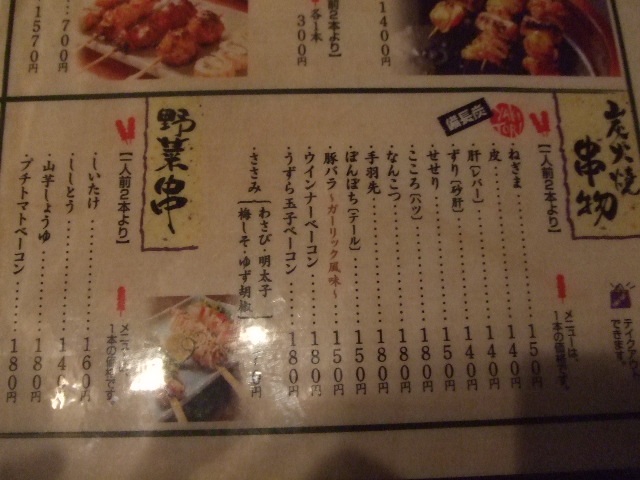 1400円
【一人前2本より】
各1本
300円
700円
1570円
炭火焼
串物
備長炭
【一人前2本より】
メニューは、
1本の値段です。
テイクアウト
できます。
・ねぎま 150円
・皮 140円
・肝〔レバー〕 140円
・ずり〔砂肝〕 140円
・せせり 150円
・こころ〔ハツ〕 180円
・なんこつ 180円
・手羽先 180円
・ぼんぼち〔テール〕 150円
・豚バラ〜ガーリック風味〜 150円
・ウインナーベーコン 180円
・うずら玉子ベーコン 180円
・ささみ〔わさび 明太子
梅しそ ゆず胡椒〕 円
野菜串
【一人前2本より】
メニューは、
1本の値段です。
・しいたけ 160円
・ししとう 140円
・山芋しょうゆ 180円
・プチトマトベーコン 180円